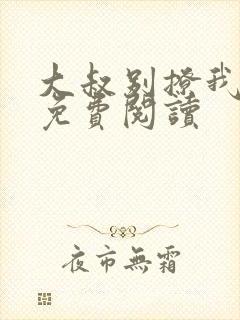 大叔别撩我
免費閱讀
夜市無霜